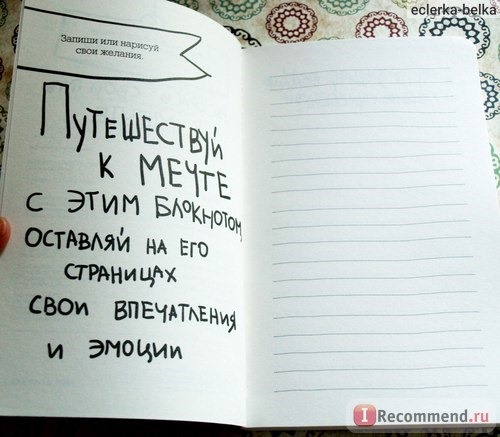 eclerka-belka
Запиши или нарисуй
свои желания.
Путешествуй
к мечте
с этим блокнотом,
оставляй на его
страницах
свои впечатления
и эмоции
I Recommend.ru